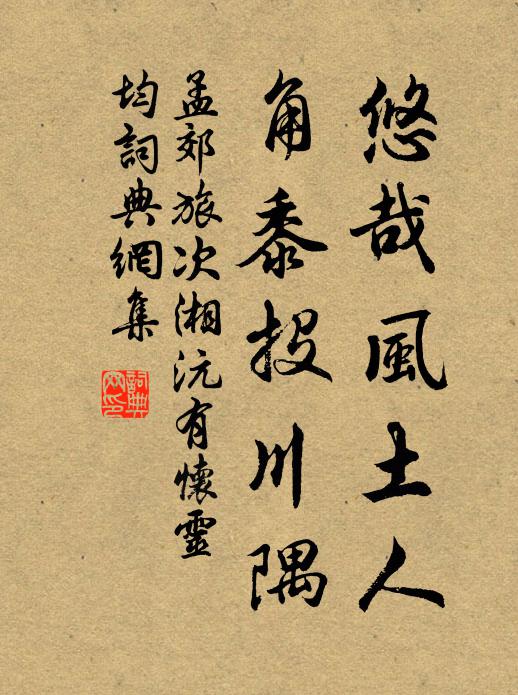 悠哉風土人
角黍投川隅
孟郊旅次湘沅有懷靈
均詞典網集
詞典
网印